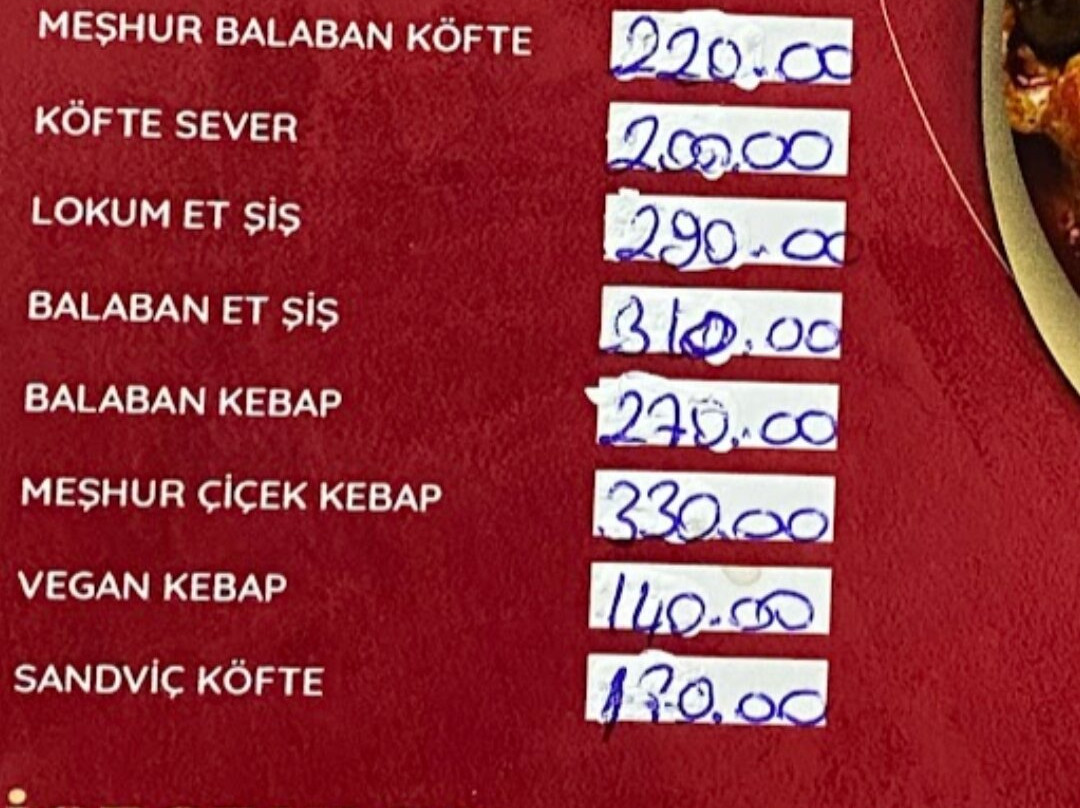 MEŞHUR BALABAN KÖFTE 220.00
KÖFTE SEVER 200.00
LOKUM ET ŞİŞ 290.00
BALABAN ET ŞİŞ 310.00
BALABAN KEBAP 270.00
MEŞHUR ÇİÇEK KEBAP 330.00
VEGAN KEBAP 140.00
SANDVİÇ KÖFTE